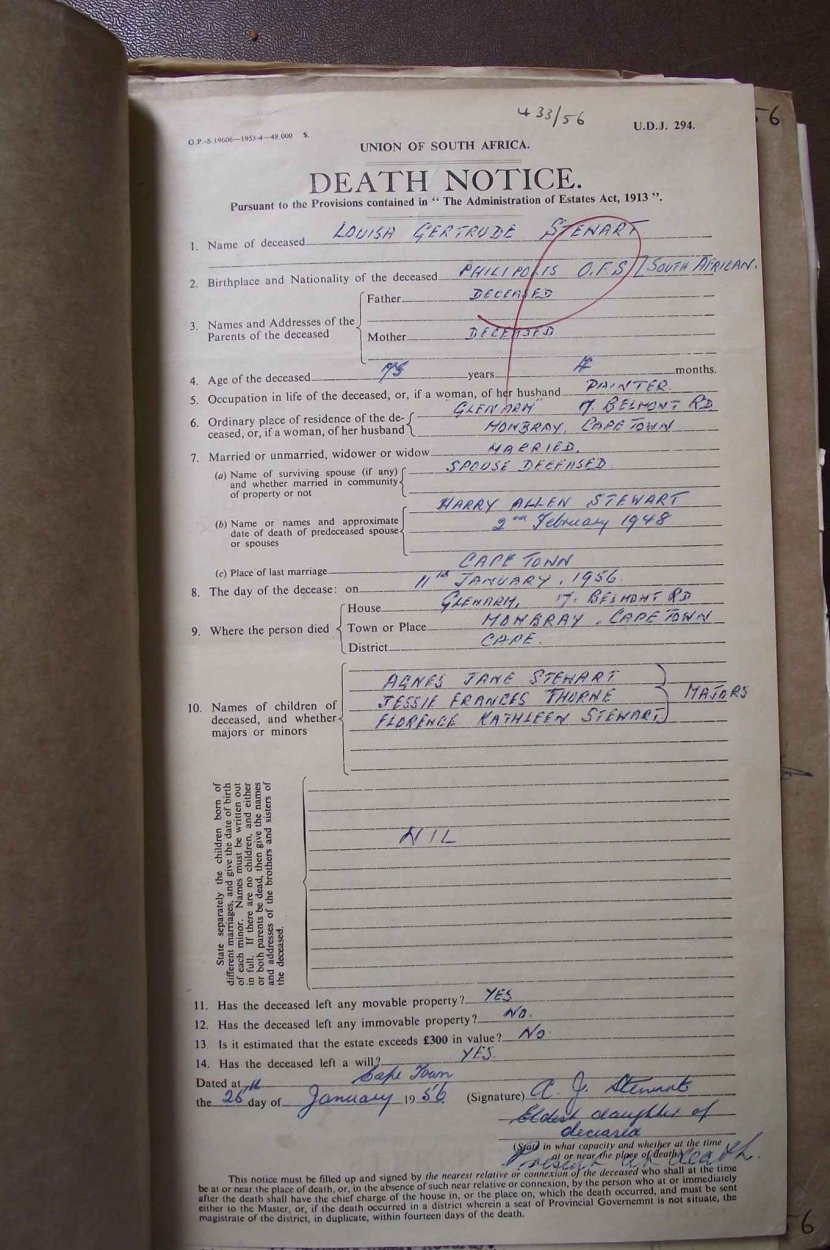 433/56
56
G.P.-S.19606—1953-4—48,000 S.
U.D.J. 294.
UNION OF SOUTH AFRICA.
DEATH NOTICE.
Pursuant to the Provisions contained in “ The Administration of Estates Act, 1913 ”.
1. Name of deceased LOUISA GERTRUDE STEWART
2. Birthplace and Nationality of the deceased PHILIPOLIS O.F.S / SOUTH AFRICAN.
3. Names and Addresses of the Parents of the deceased
Father DECEASED
Mother DECEASED
4. Age of the deceased 75 years 4 months.
5. Occupation in life of the deceased, or, if a woman, of her husband PAINTER
6. Ordinary place of residence of the de-
ceased, or, if a woman, of her husband
"GLENARM" 7. BELMONT RD
MOWBRAY. CAPE TOWN
7. Married or unmarried, widower or widow MARRIED.
(a) Name of surviving spouse (if any)
and whether married in community
of property or not
SPOUSE DECEASED.
(b) Name or names and approximate
date of death of predeceased spouse
or spouses
HARRY ALLEN STEWART
2nd February 1948
(c) Place of last marriage CAPE TOWN
8. The day of the decease: on 11th JANUARY, 1956.
9. Where the person died
House GLENARM, 7. BELMONT RD
Town or Place MOWBRAY, CAPE TOWN
District CAPE.
10. Names of children of
deceased, and whether
majors or minors
AGNES JANE STEWART
JESSIE FRANCES THORNE
FLORENCE KATHLEEN STEWART
MAJORS
State separately the children born of
different marriages, and give the date of birth
of each minor. Names must be written out
in full. If there are no children, and either
or both parents be dead, then give the names
and addresses of the brothers and sisters of
the deceased.
NIL
11. Has the deceased left any movable property? YES
12. Has the deceased left any immovable property? NO.
13. Is it estimated that the estate exceeds £300 in value? NO
14. Has the deceased left a will? YES
Dated at Cape Town
the 26th day of January 1956 (Signature) A. J. Stewart
Eldest daughter of
deceased
(State in what capacity and whether at the time
at or near the place of death)
Present at death.
This notice must be filled up and signed by the nearest relative or connexion of the deceased who shall at the time
be at or near the place of death, or, in the absence of such near relative or connexion, by the person who at or immediately
after the death shall have the chief charge of the house in, or the place on, which the death occurred, and must be sent
either to the Master, or, if the death occurred in a district wherein a seat of Provincial Governemnt is not situate, the
magistrate of the district, in duplicate, within fourteen days of the death.
56